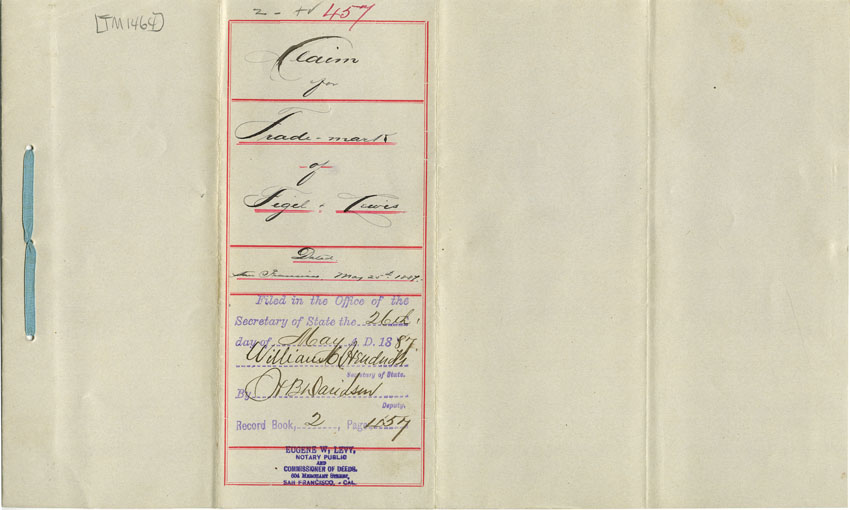 [TM1464]
2 - 457
Claim
for
Trade-mark
of
Figel &
Dated
San Francisco May 25th 1887.
Filed in the Office of the
Secretary of State the 26th
day of May A. D. 1887.
William C Hendricks
Secretary of State.
By H B Davidson
Deputy.
Record Book, 2, Page
EUGENE W. LEVY,
NOTARY PUBLIC
AND
COMMISSIONER OF DEEDS.
604 MERCHANT STREET,
SAN FRANCISCO, - CAL.